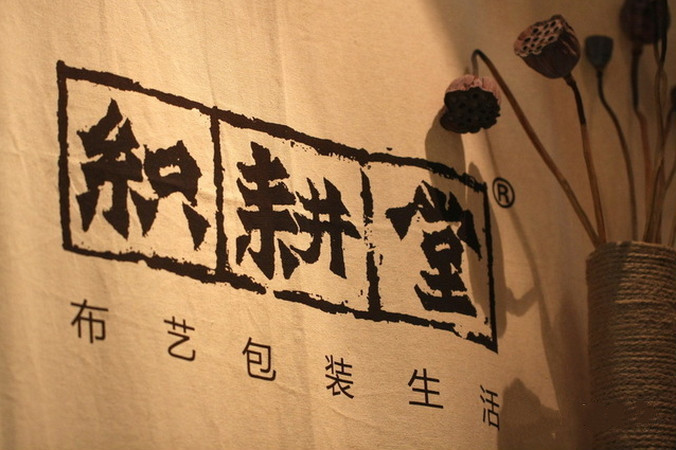 织耕堂®
布艺包装生活